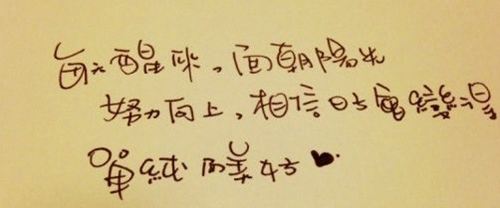 每天醒来,面朝陽光
努力向上,相信日子會變得
單純而美好